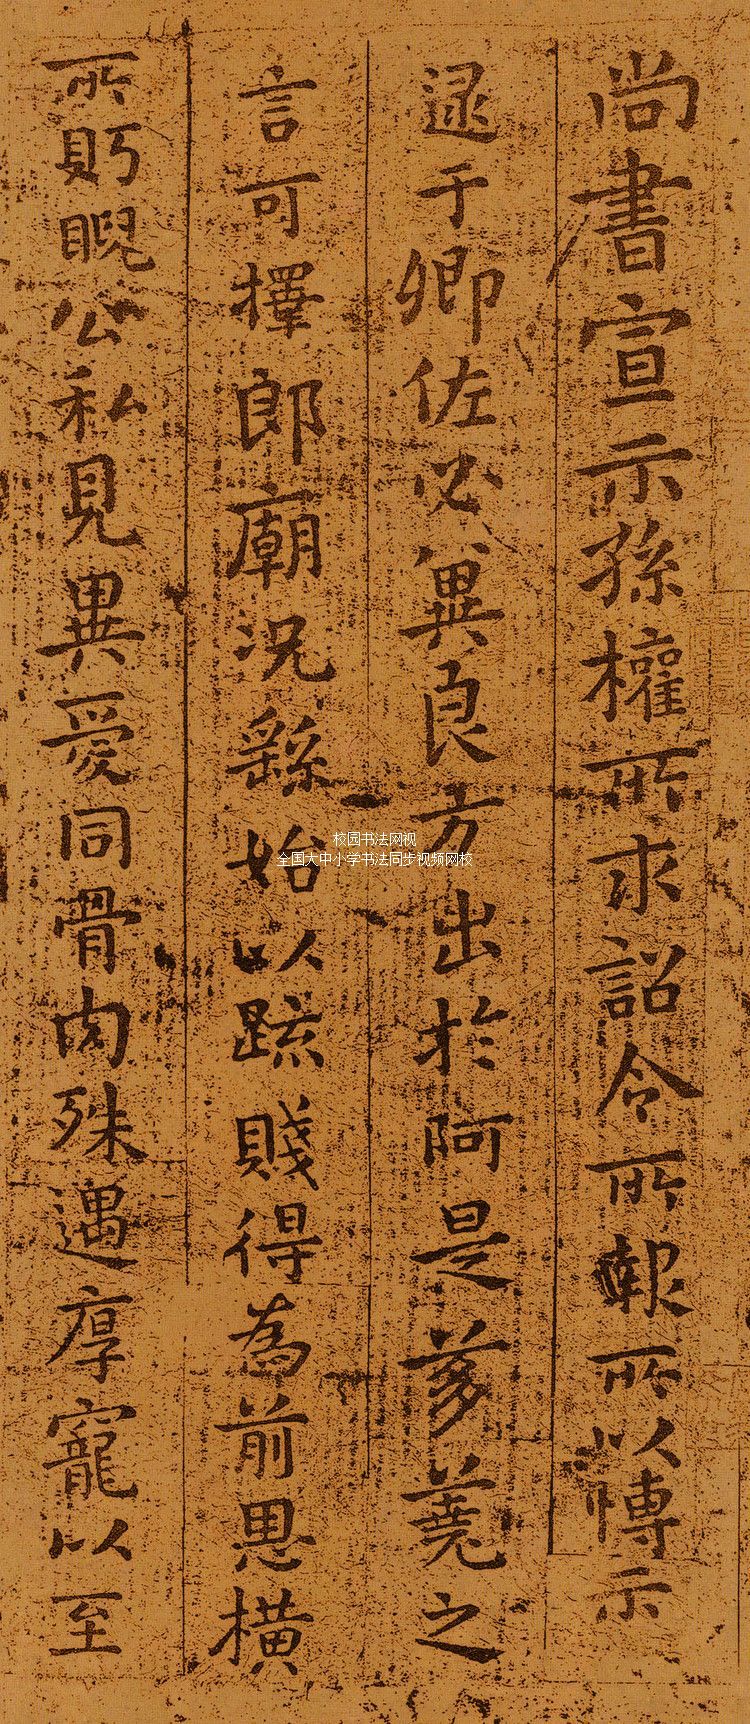 尚書宣示孫權所求詔令所報所以博示
逮于卿佐必冀良方出於阿是芻蕘之
言可擇郎廟況繇始以疏賤得為前恩橫
所眄睨公私見異愛同骨肉殊遇厚寵以至
校园书法网视
全国大中小学书法同步视频网校